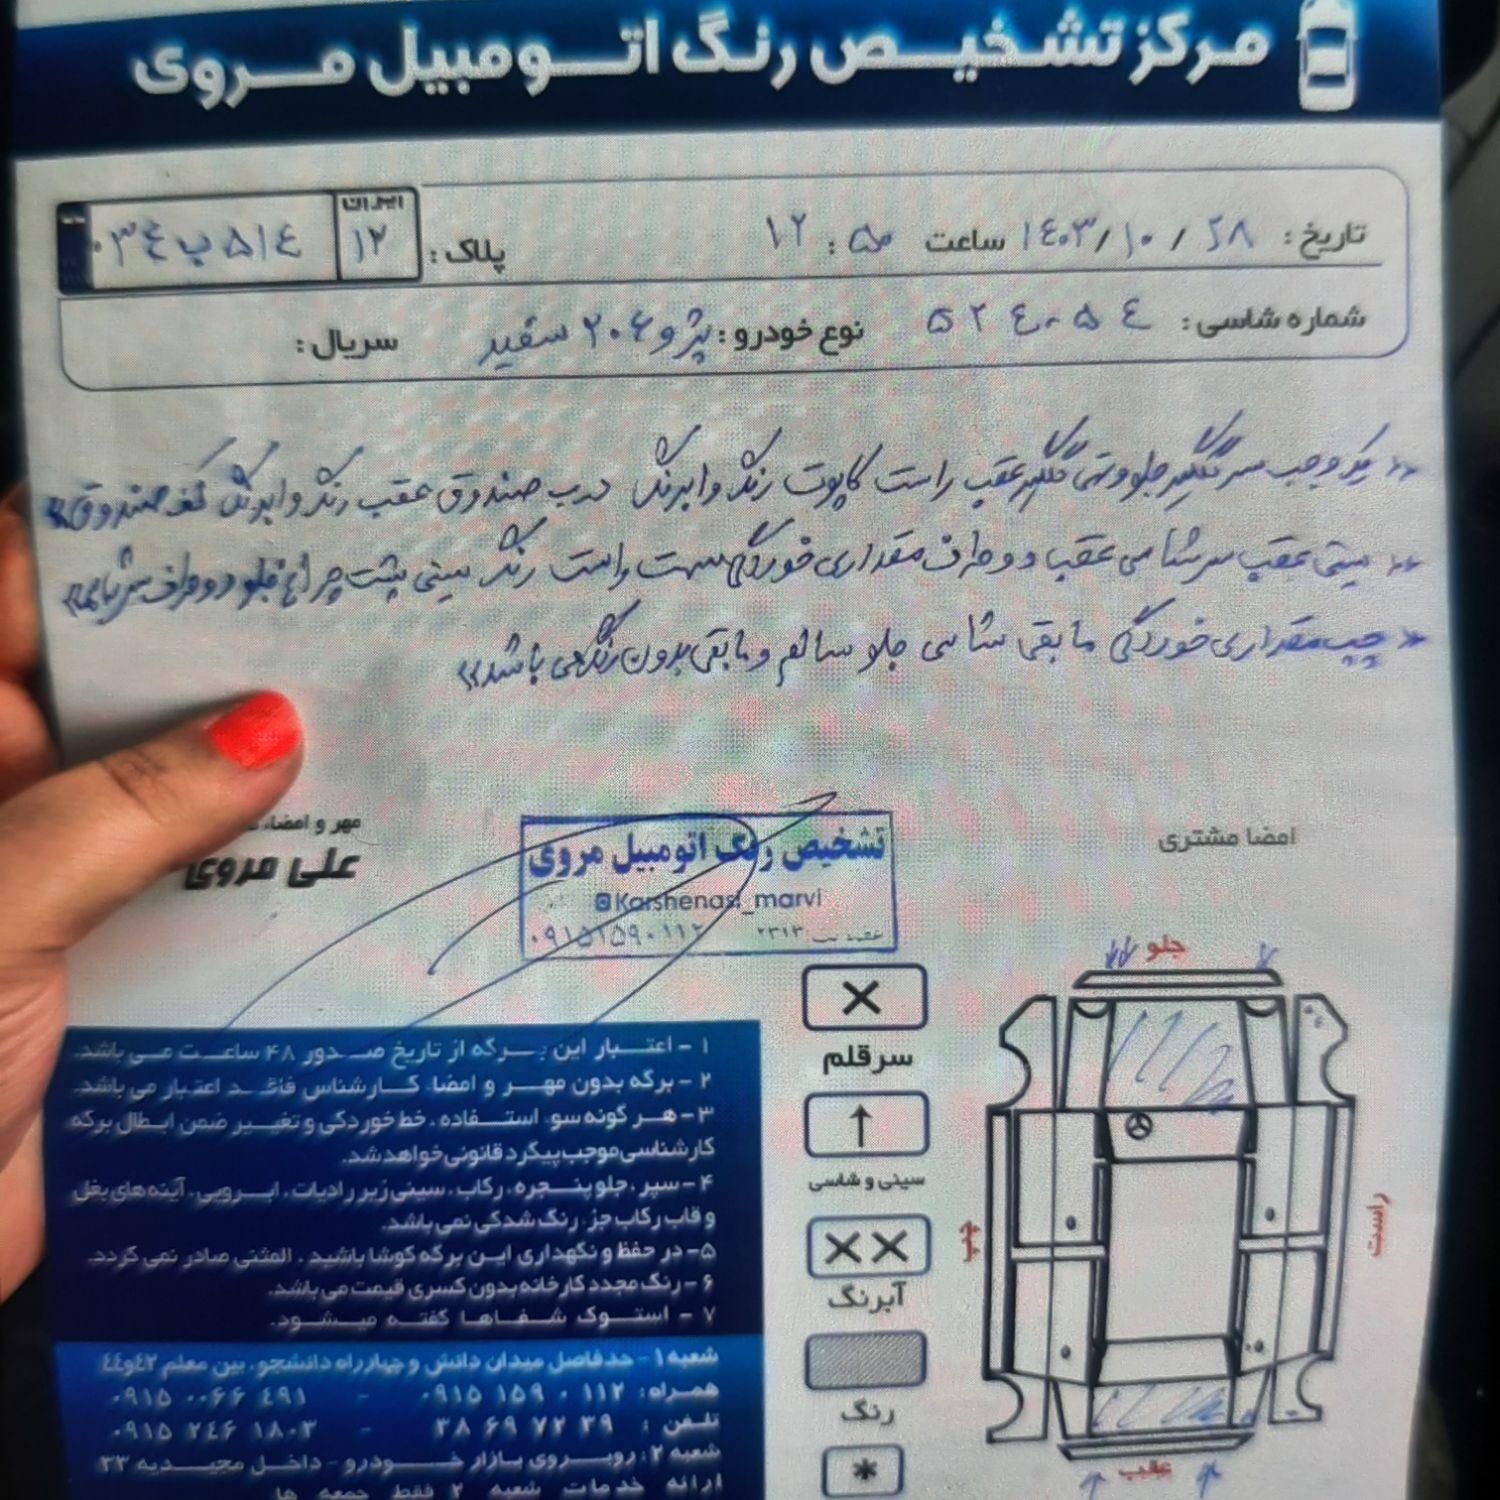 مرکز تشخیص رنگ اتومبیل مروی
تاریخ: ۱۴۰۳/۱۰/۲۸ ساعت ۱۲:۵۰ پلاک: ایران ۱۲ ۵۱۴ ب ۳۴
شماره شاسی: ۵۲۴۰۵۴ نوع خودرو: پژو ۲۰۶ سفید سریال:
یک وجب سر گلگیر جلو و ته گلگیر عقب راست کاپوت رنگ و ابرنگ درب صندوق عقب رنگ و ابرنگ کف صندوق
سینی عقب سر شاسی عقب دو طرف مقداری خوردگی سمت راست رنگ سینی پشت چراغ جلو دو طرف سر شاسی
چپ مقداری خوردگی مابقی شاسی جلو سالم و مابقی بدون رنگ می باشد
مهر و امضاء
علی مروی
تشخیص رنگ اتومبیل مروی
@Karshenasi_marvi
۰۹۱۵۱۵۹۰۱۱۲ ۲۳۱۳
امضا مشتری
۱- اعتبار این برگه از تاریخ صدور ۴۸ ساعت می باشد.
۲- برگه بدون مهر و امضاء کارشناس فاقد اعتبار می باشد.
۳- هر گونه سوء استفاده، خط خوردگی و تغییر ضمن ابطال برگه
کارشناسی موجب پیگرد قانونی خواهد شد.
۴- سپر، جلو پنجره، رکاب، سینی زیر رادیات، ابرویی، آینه های بغل
و قاب رکاب جزء رنگ شدگی نمی باشد.
۵- در حفظ و نگهداری این برگه کوشا باشید، المثنی صادر نمی گردد.
۶- رنگ مجدد کارخانه بدون کسری قیمت می باشد.
۷- استوک شفاها گفته میشود.
شعبه ۱- حدفاصل میدان دانش و چهارراه دانشجو، بین معلم ۴۲و۴۴
همراه: ۰۹۱۵ ۱۵۹ ۰ ۱۱۲ - ۰۹۱۵ ۰۰۶۶ ۴۹۱
تلفن: ۳۸ ۶۹ ۷۲ ۳۹ - ۰۹۱۵ ۲۴۶ ۱۸۰۳
شعبه ۲: روبروی بازار خودرو - داخل مجیدیه ۳۳
ارائه خدمات شعبه ۲ فقط جمعه ها
سرقلم
سینی و شاسی
آبرنگ
رنگ
جلو
راست
چپ
عقب